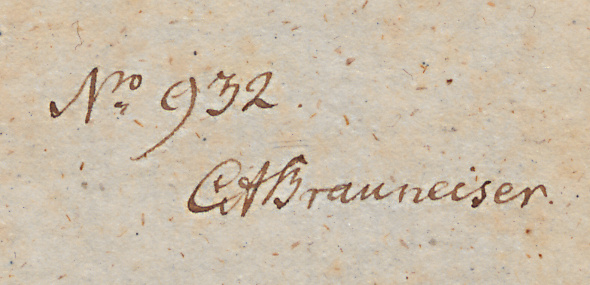 Nro 932.
CABrauneiser.